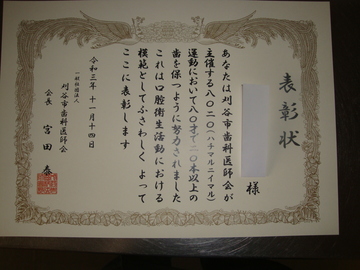 表彰状
様
あなたは刈谷市歯科医師会が
主催する八〇二〇(ハチマルニイマル)
運動において八〇才で二〇本以上の
歯を保つように努力されました
これは口腔衛生活動における
模範としてふさわしく よって
ここに表彰します
令和三年 十一月十四日
一般社団法人
刈谷市歯科医師会
会長 宮田 泰